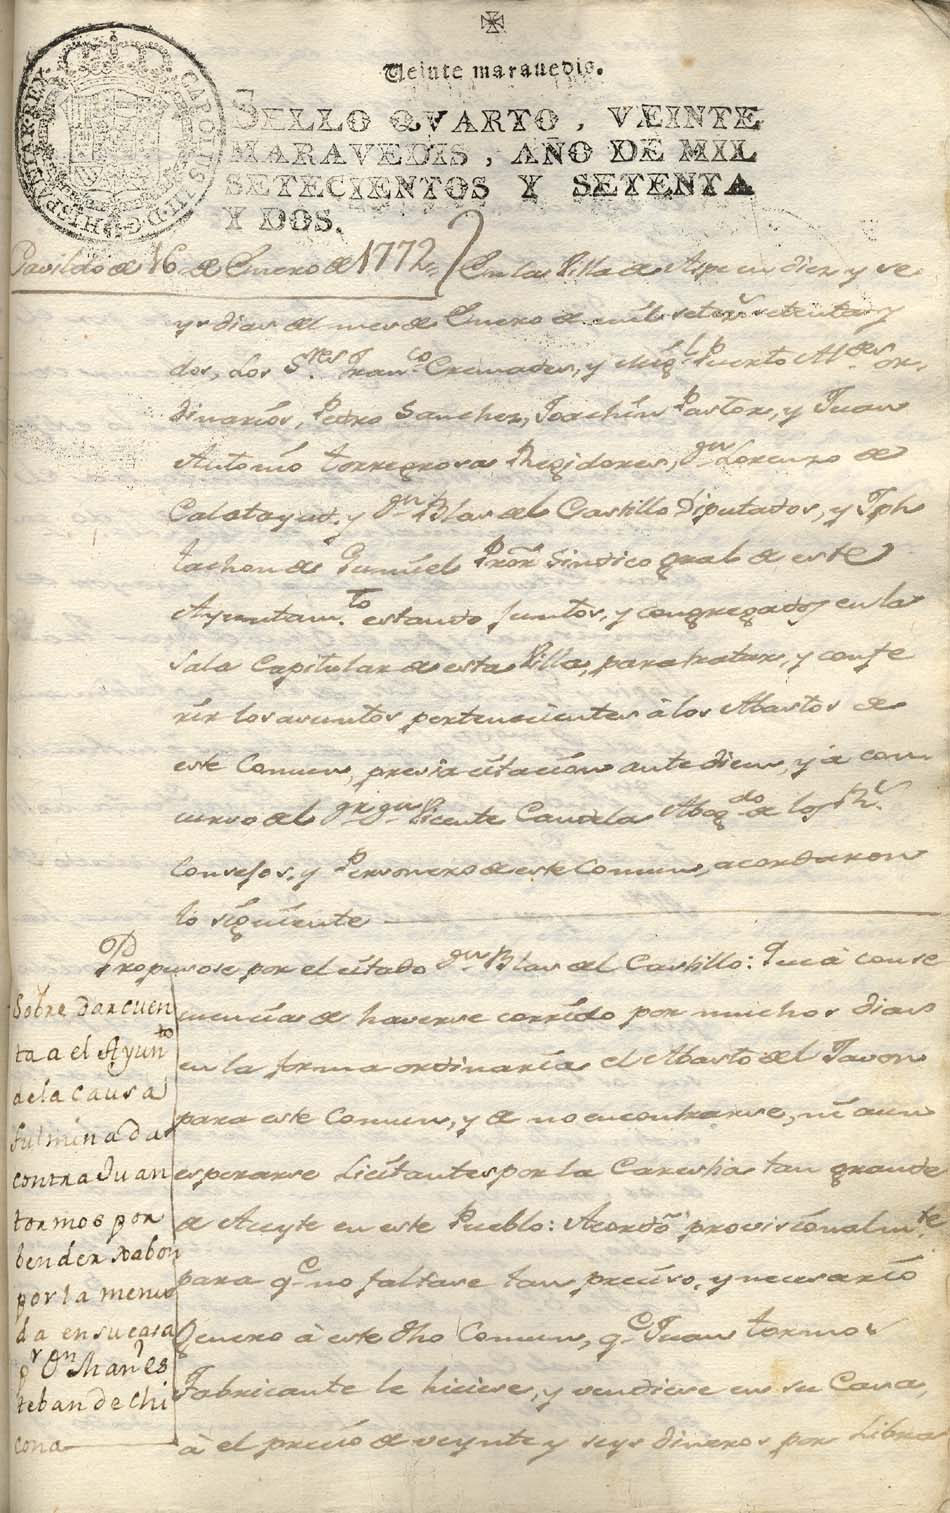 CAROLUS III D G HISPANIAR REX
Veinte maravedis.
SELLO QVARTO, VEINTE
MARAVEDIS, AÑO DE MIL
SETECIENTOS Y SETENTA
Y DOS.
Cavildo de 16 de Enero de 1772 En la Villa de Aspe en diez y se
ys dias del mes de Enero de mil setez.s setenta y
dos, Los S.res Fran.co Cremades, y Mig.l Puerto Al.des or-
dinarios, Pedro Sanchez, Joachin Pastor, y Juan
Antonio torregrosa Regidores, dn Lorenzo de
Calatayud, y dn Blas del Castillo Diputados, y Jph
tachon de Gumiel Pror Sindico gral de este
Ayuntam.to estando juntos, y congregados en la
Sala Capitular de esta Villa, para tratar, y confe
rir los asuntos pertenecientes à los Abastos de
este Comun, previa citacion ante diem, y à con
curso del Sr dn Vicente Candela Abog.do de los R.s
Consejos, y Personero de este Comun, acordaron
lo siguiente
Propusose por el citado dn Blas del Castillo: Que à conse
quencia de haverse corrido por muchos dias
en la forma ordinaria el Abasto del Javon
para este Comun, y de no encontrarse, ni aun
esperarse Licitantes por la Carestia tan grande
de Aceyte en este Pueblo: Acordò provisionalm.te
para q.e no faltase tan preciso, y necesario
Genero à este dho Comun, q.e Juan tormos
Fabricante le hiciese, y vendiese en su Casa,
à el precio de veynte y seys dineros por Libra
Sobre dar cuen
ta a el Ayunto
de la causa
fulminada
contra Juan
tormos por
bender xabon
por la menu
da en su casa
pr Dn Manl es
teban de Chi
cona